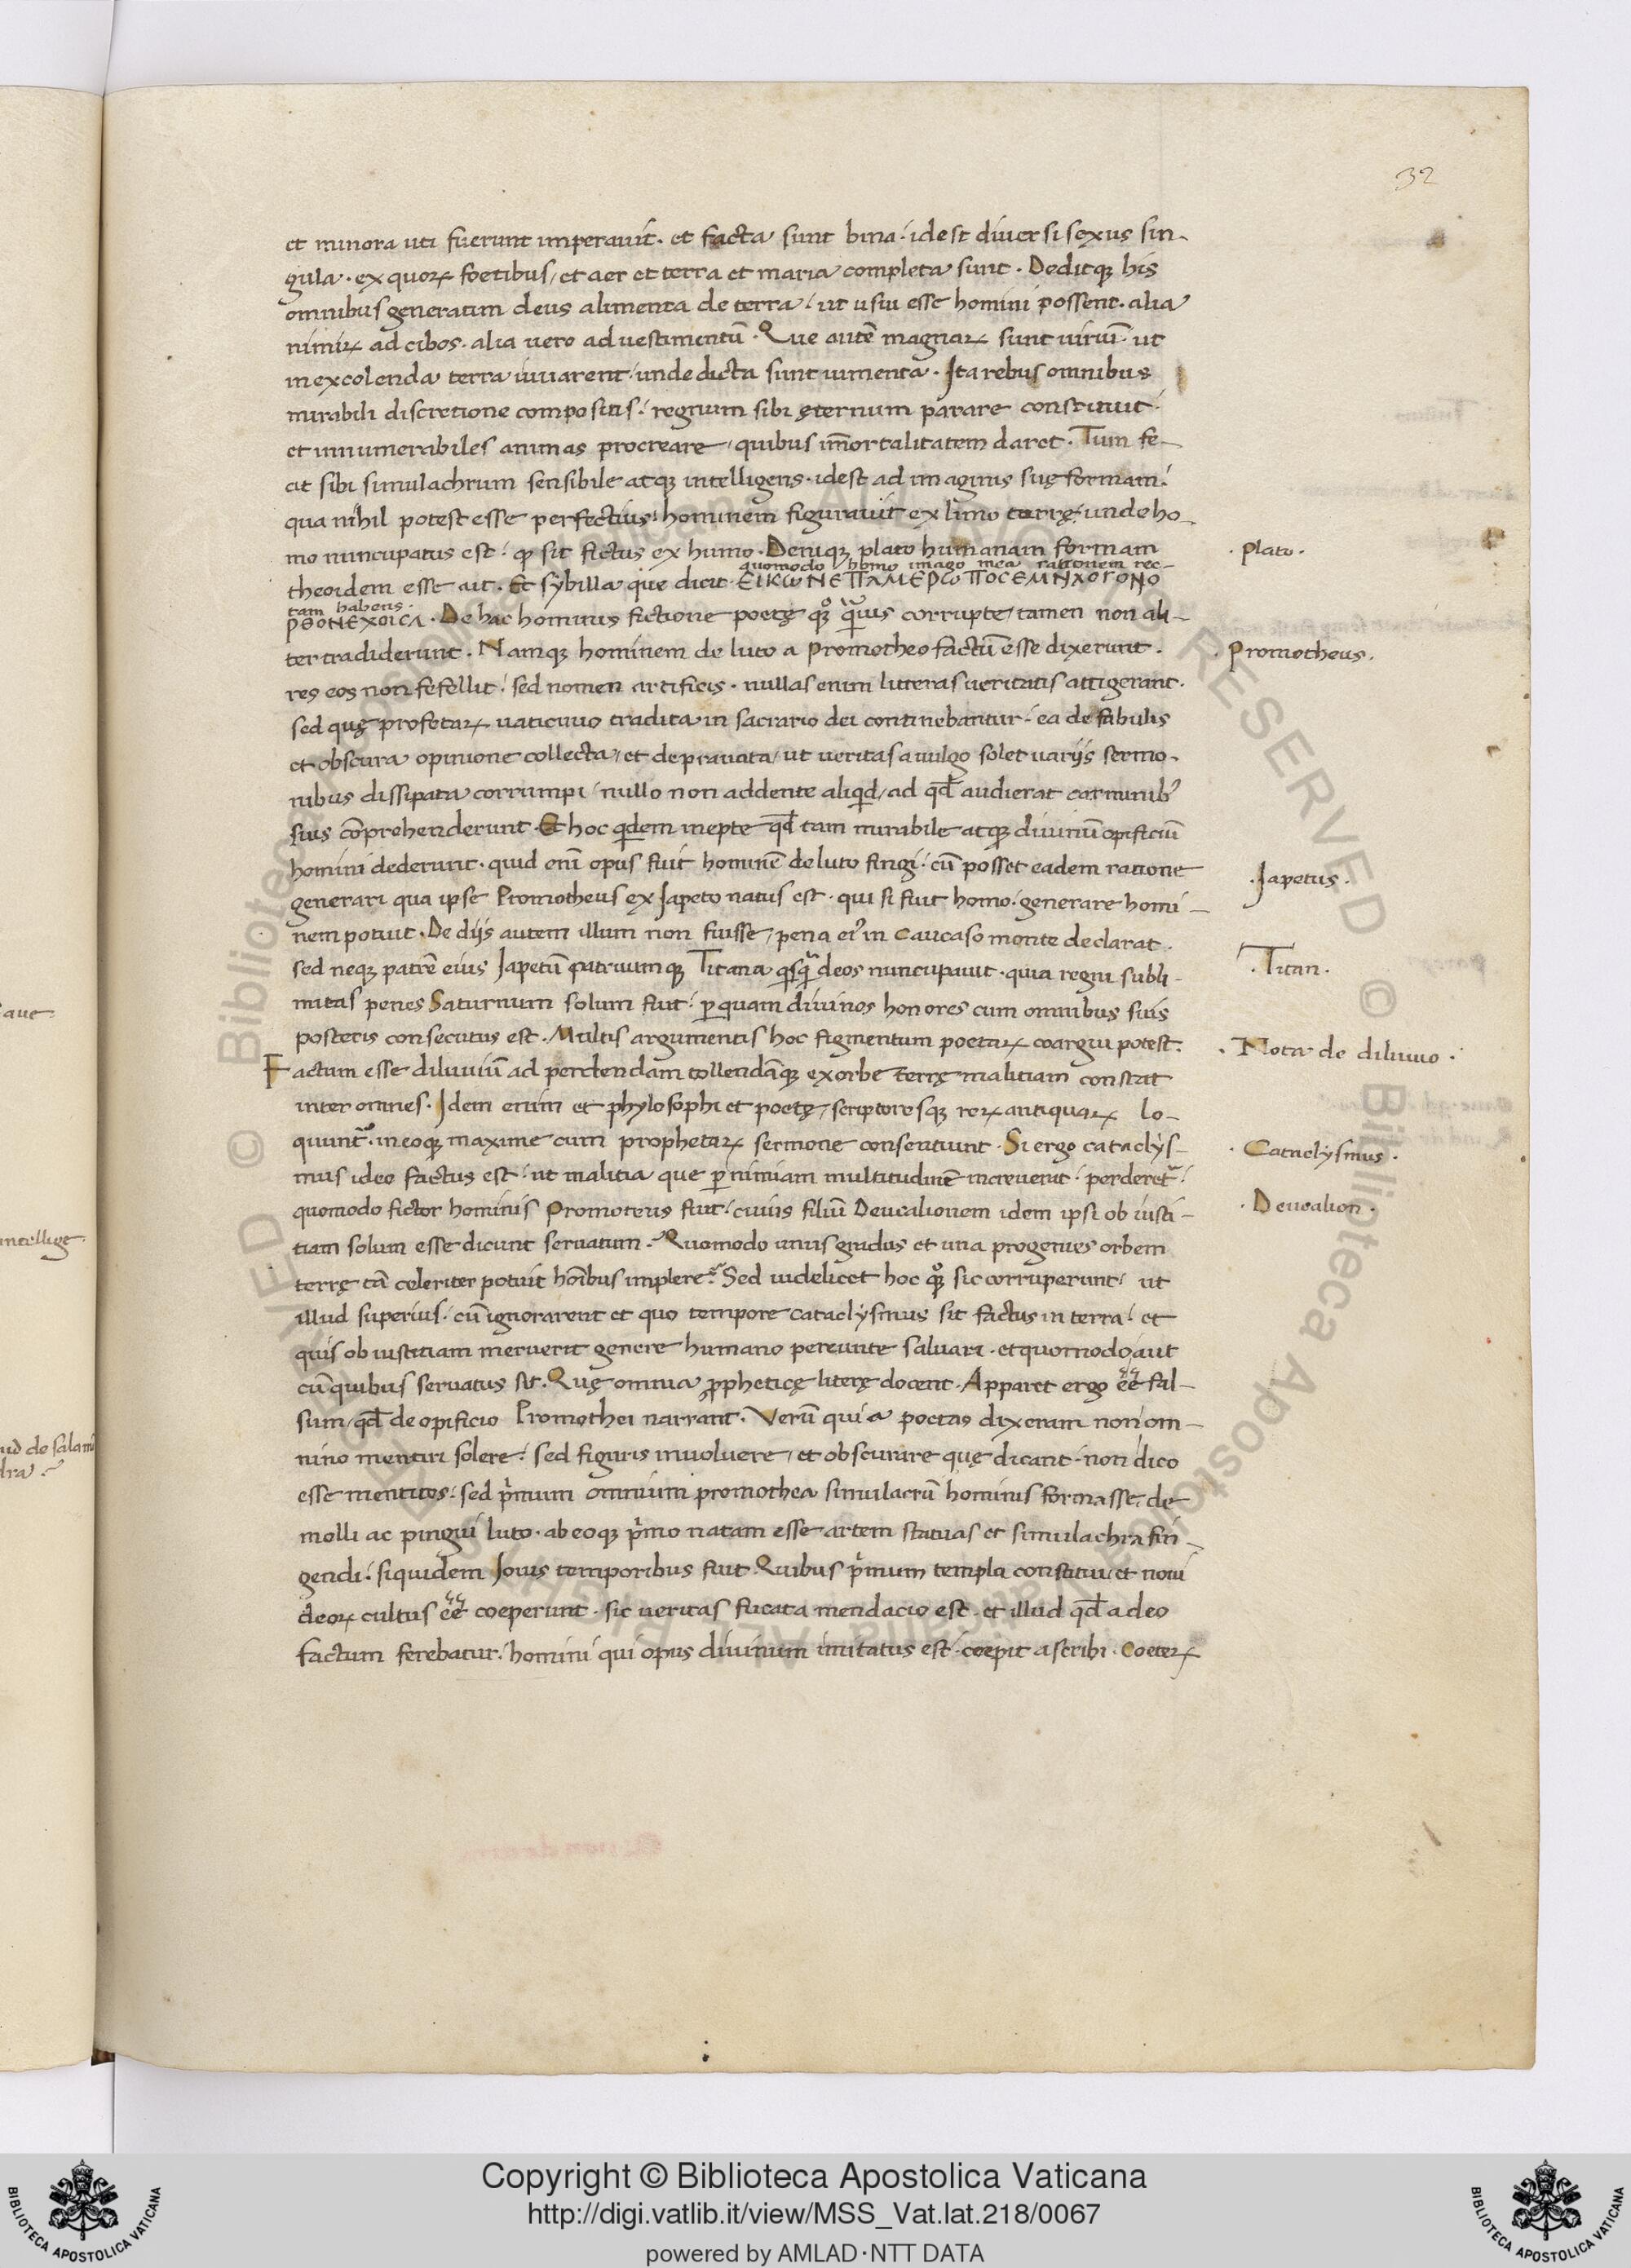 32
et minora uti fuerunt imperavit. et facta sunt bina. idest diversi sexus sin-
gula. ex quoꝝ foetibus, et aer et terra et maria completa sunt. Deditqꝫ his
omnibus generatim deus alimenta de terra. ut usui esse homini possent. alia
nimiꝝ ad cibos. alia uero ad uestimentū. Que autē magnaꝝ sunt uiriū. ut
in excolenda terra iuuarent. unde dicta sunt iumenta. Ita rebus omnibus
mirabili discretione compositis. regnum sibi ęternum parare constituit.
et innumerabiles animas procreare, quibus īmortalitatem daret. Tum fe-
cit sibi simulachrum sensibile atqꝫ intelligens. idest ad imaginis suę formam.
qua nihil potest esse perfectius. hominem figurauit ex limo terrę. unde ho-
mo nuncupatus est. ꝙ sit fictus ex humo. Deniqꝫ plato humanam formam
Plato.
quomodo homo imago mea rationem rec-
theoidem esse ait. Et sybilla que dicit. ΕΙΚωΝΕΠΑΜΕΡωΠΟCΕΜΝΧΟΓΟΝΟ
tam habens.
ΡΘΟΝΕΧΟΙCΑ. De hac hominis fictione poetę qꝫͦ quāuis corrupte, tamen non ali-
ter tradiderunt. Namqꝫ hominem de luto a Promotheo factū esse dixerunt.
Promotheus.
res eos non fefellit. sed nomen artificis. nullas enim litteras ueritatis attigerant.
sed quę profetaꝝ uaticinio tradita in sacrario dei continebantur. ea de fabulis
et obscura opinione collecta, et deprauata, ut ueritas a uulgo solet uariis sermo-
nibus dissipata corrumpi, nullo non addente aliqd, ad qđ audierat carminibꝰ
suis cōprehenderunt. Et hoc qdem inepte qđ tam mirabile atqꝫ diuinū opificiū
homini dederunt. quid enī opus fuit hominē de luto fingi. cū posset eadem ratione
generari qua ipse Promotheus ex Iapeto natus est. qui si fuit homo. generare homi-
Iapetus.
nem potuit. De diis autem illum non fuisse, pena eiꝰ in Caucaso monte declarat.
sed neqꝫ patrē eius Iapetū patruumqꝫ Titana qsqͣ deos nuncupauit. quia regni subli-
Titan.
mitas penes Saturnum solum fuit. ꝑ quam diuinos honores cum omnibus suis
posteris consecutus est. Multis argumentis hoc figmentum poetaꝝ coargui potest.
Nota de diluuio.
Factum esse diluuiū ad perdendam tollendāqꝫ ex orbe terrę malitiam constat
inter omnes. Idem enim et phylosophi et poetę, scriptoresqꝫ reꝝ antiquaꝝ lo-
quuntᷣ. in eoqꝫ maxime cum prophetaꝝ sermone consentiunt. Si ergo cataclys-
Cataclysmus.
mus ideo factus est. ut malitia que ꝑ nimiam multitudinē increuerit. perderetᷣ.
quomodo fictor hominis Promoteus fuit. cuius filiū Deucalionem idem ipsi ob iusti-
Deucalion.
tiam solum esse dicunt seruatum. Quomodo unus gradus et una progenies orbem
terrę tā celeriter potuit hoībus implere. Sed uidelicet hoc qꝫͦ sic corruperunt. ut
illud superius. cū ignorarent et quo tempore cataclysmus sit factus in terra. et
quis ob iustitiam meruerit genere humano pereunte saluari. et quomodo, aut
cū quibus seruatus sit. Quę omnia ꝓpheticę literę docent. Apparet ergo eē fal-
sum, qđ de opificio Promothei narrant. Verū quia poetas dixeram non om-
nino mentiri solere. sed figuris inuoluere, et obscurare quę dicant. non dico
esse mentitos. sed pͥmum omnium promothea simulacrū hominis formasse. de
molli ac pingui luto. ab eoqꝫ pͥmo natam esse artem statuas et simulachra fin-
gendi. siquidem Iouis temporibus fuit. Quibus pͥmum templa constitui, et noui
deoꝝ cultus eē coeperunt. sic ueritas fucata mendacio est. et illud qđ a deo
factum ferebatur. homini qui opus diuinum imitatus est. coepit ascribi. Coeteꝝ
intellige.
Copyright © Biblioteca Apostolica Vaticana
http://digi.vatlib.it/view/MSS_Vat.lat.218/0067
powered by AMLAD·NTT DATA
BIBLIOTECA APOSTOLICA VATICANA
BIBLIOTECA APOSTOLICA VATICANA